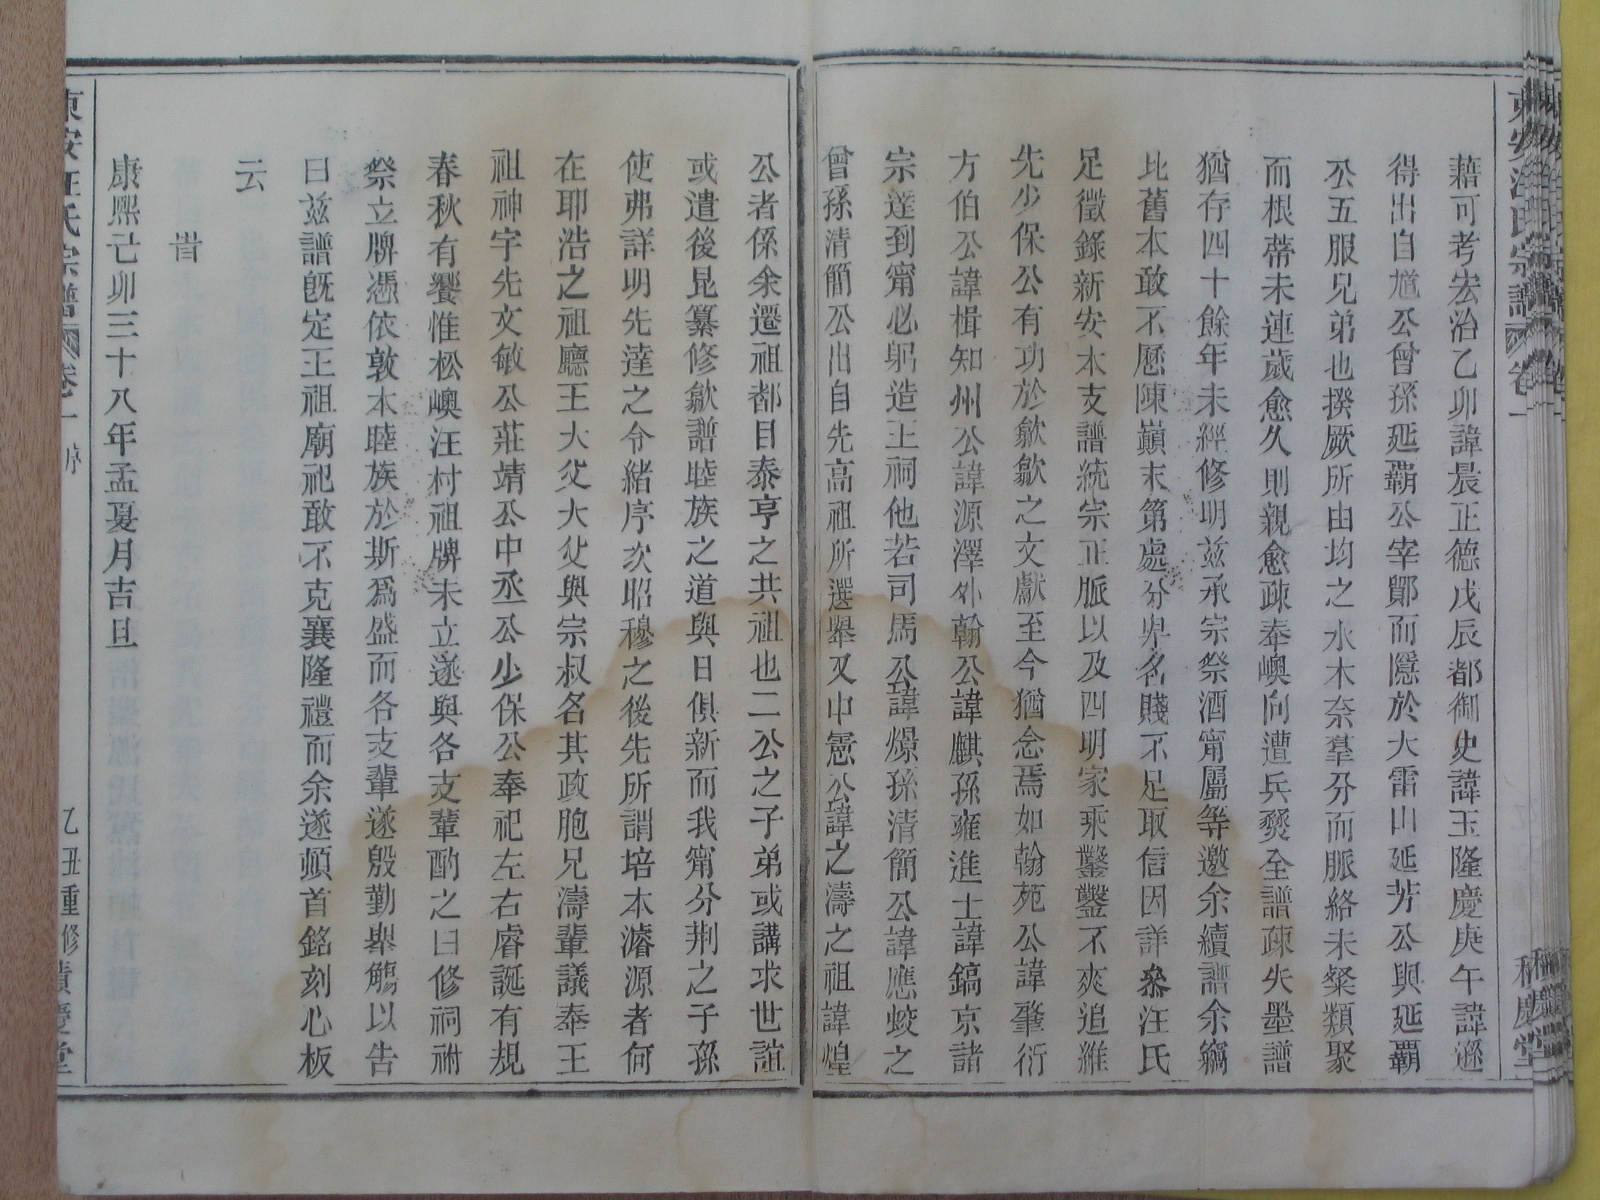 東安汪氏宗譜 卷一
積慶堂
藉可考宏治乙卯諱晨正德戊辰都御史諱玉隆慶庚午諱遜
得出自馗公曾孫延覇公宰鄞而隱於大雷山延芳公與延覇
公五服兄弟也揆厥所由均之水木奈羣分而脈絡未粲類聚
而根蒂未連歲愈久則親愈疎奉嶼向遭兵燹全譜疎失墨譜
猶存四十餘年未經修明兹承宗祭酒甯屬等邀余續譜余竊
比舊本敢不歷陳巔末第處分卑名賤不足取信因詳叅汪氏
足徵錄新安本支譜統宗正脈以及四明家乘鑿鑿不爽追維
先少保公有功於歙歙之文獻至今猶念焉如翰苑公諱肇衍
方伯公諱楫知州公諱源澤外翰公諱麒孫雍進士諱鎬京諸
宗達到甯必躬造王祠他若司馬公諱爆孫清簡公諱應蛟之
曾孫清簡公出自先高祖所選舉又中憲公諱之濤之祖諱煌
公者係余遷祖都目泰亨之共祖也二公之子弟或講求世誼
或遣後昆纂修歙譜睦族之道與日俱新而我甯分荆之子孫
使弗詳明先達之令緒序次昭穆之後先所謂培本濬源者何
在耶浩之祖廳王大父大父與宗叔名其政胞兄濤輩議奉王
祖神宇先文敏公莊靖公中丞公少保公奉祀左右睿誕有規
春秋有饗惟松嶼汪村祖牌未立遂與各支輩酌之曰修祠祔
祭立牌憑依敦本睦族於斯爲盛而各支輩遂殷勤舉觴以告
曰兹譜旣定王祖廟祀敢不克襄隆禮而余遂頓首銘刻心板
云
旹
康熈己卯三十八年孟夏月吉旦
東安汪氏宗譜 卷一 序
乙丑重修積慶堂